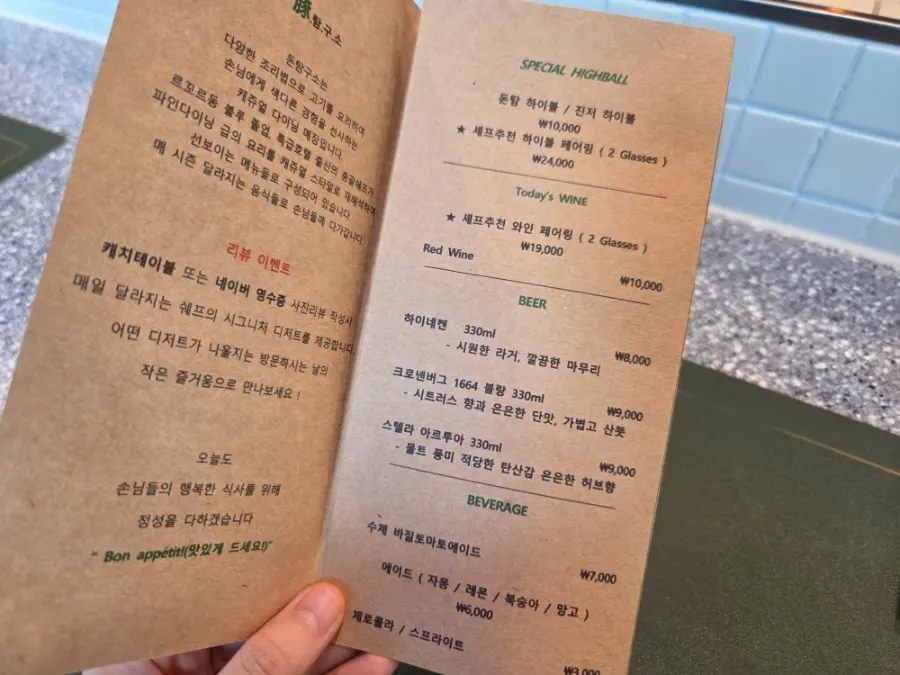 豚.탐.구.소
돈탐구소는
다양한 조리법으로 고기를 요리하며
손님에게 색다른 경험을 선사하는
캐쥬얼 다이닝 매장입니다.
르꼬르동 블루 졸업, 특급호텔 출신의 총괄쉐프가
파인다이닝 급의 요리를 캐쥬얼 스타일로 재해석하며
선보이는 메뉴들로 구성되어 있습니다
매 시즌 달라지는 음식들로 손님들께 다가갑니다.
리뷰 이벤트
캐치테이블 또는 네이버 영수증 사진리뷰 작성시
매일 달라지는 쉐프의 시그니처 디저트를 제공합니다.
어떤 디저트가 나올지는 방문하시는 날의
작은 즐거움으로 만나보세요 !
오늘도
손님들의 행복한 식사를 위해
정성을 다하겠습니다
“ Bon appétit!(맛있게 드세요!)”
SPECIAL HIGHBALL
돈탐 하이볼 / 진저 하이볼
₩10,000
★ 셰프추천 하이볼 페어링 ( 2 Glasses )
₩24,000
Today's WINE
★ 셰프추천 와인 페어링 ( 2 Glasses )
₩19,000
Red Wine
₩10,000
BEER
하이네켄 330ml
₩8,000
- 시원한 라거, 깔끔한 마무리
크로넨버그 1664 블랑 330ml
₩9,000
- 시트러스 향과 은은한 단맛, 가볍고 산뜻
스텔라 아르투아 330ml
₩9,000
- 몰트 풍미 적당한 탄산감 은은한 허브향
BEVERAGE
수제 바질토마토에이드
₩7,000
에이드 ( 자몽 / 레몬 / 복숭아 / 망고 )
₩6,000
제로콜라 / 스프라이트
₩3,000